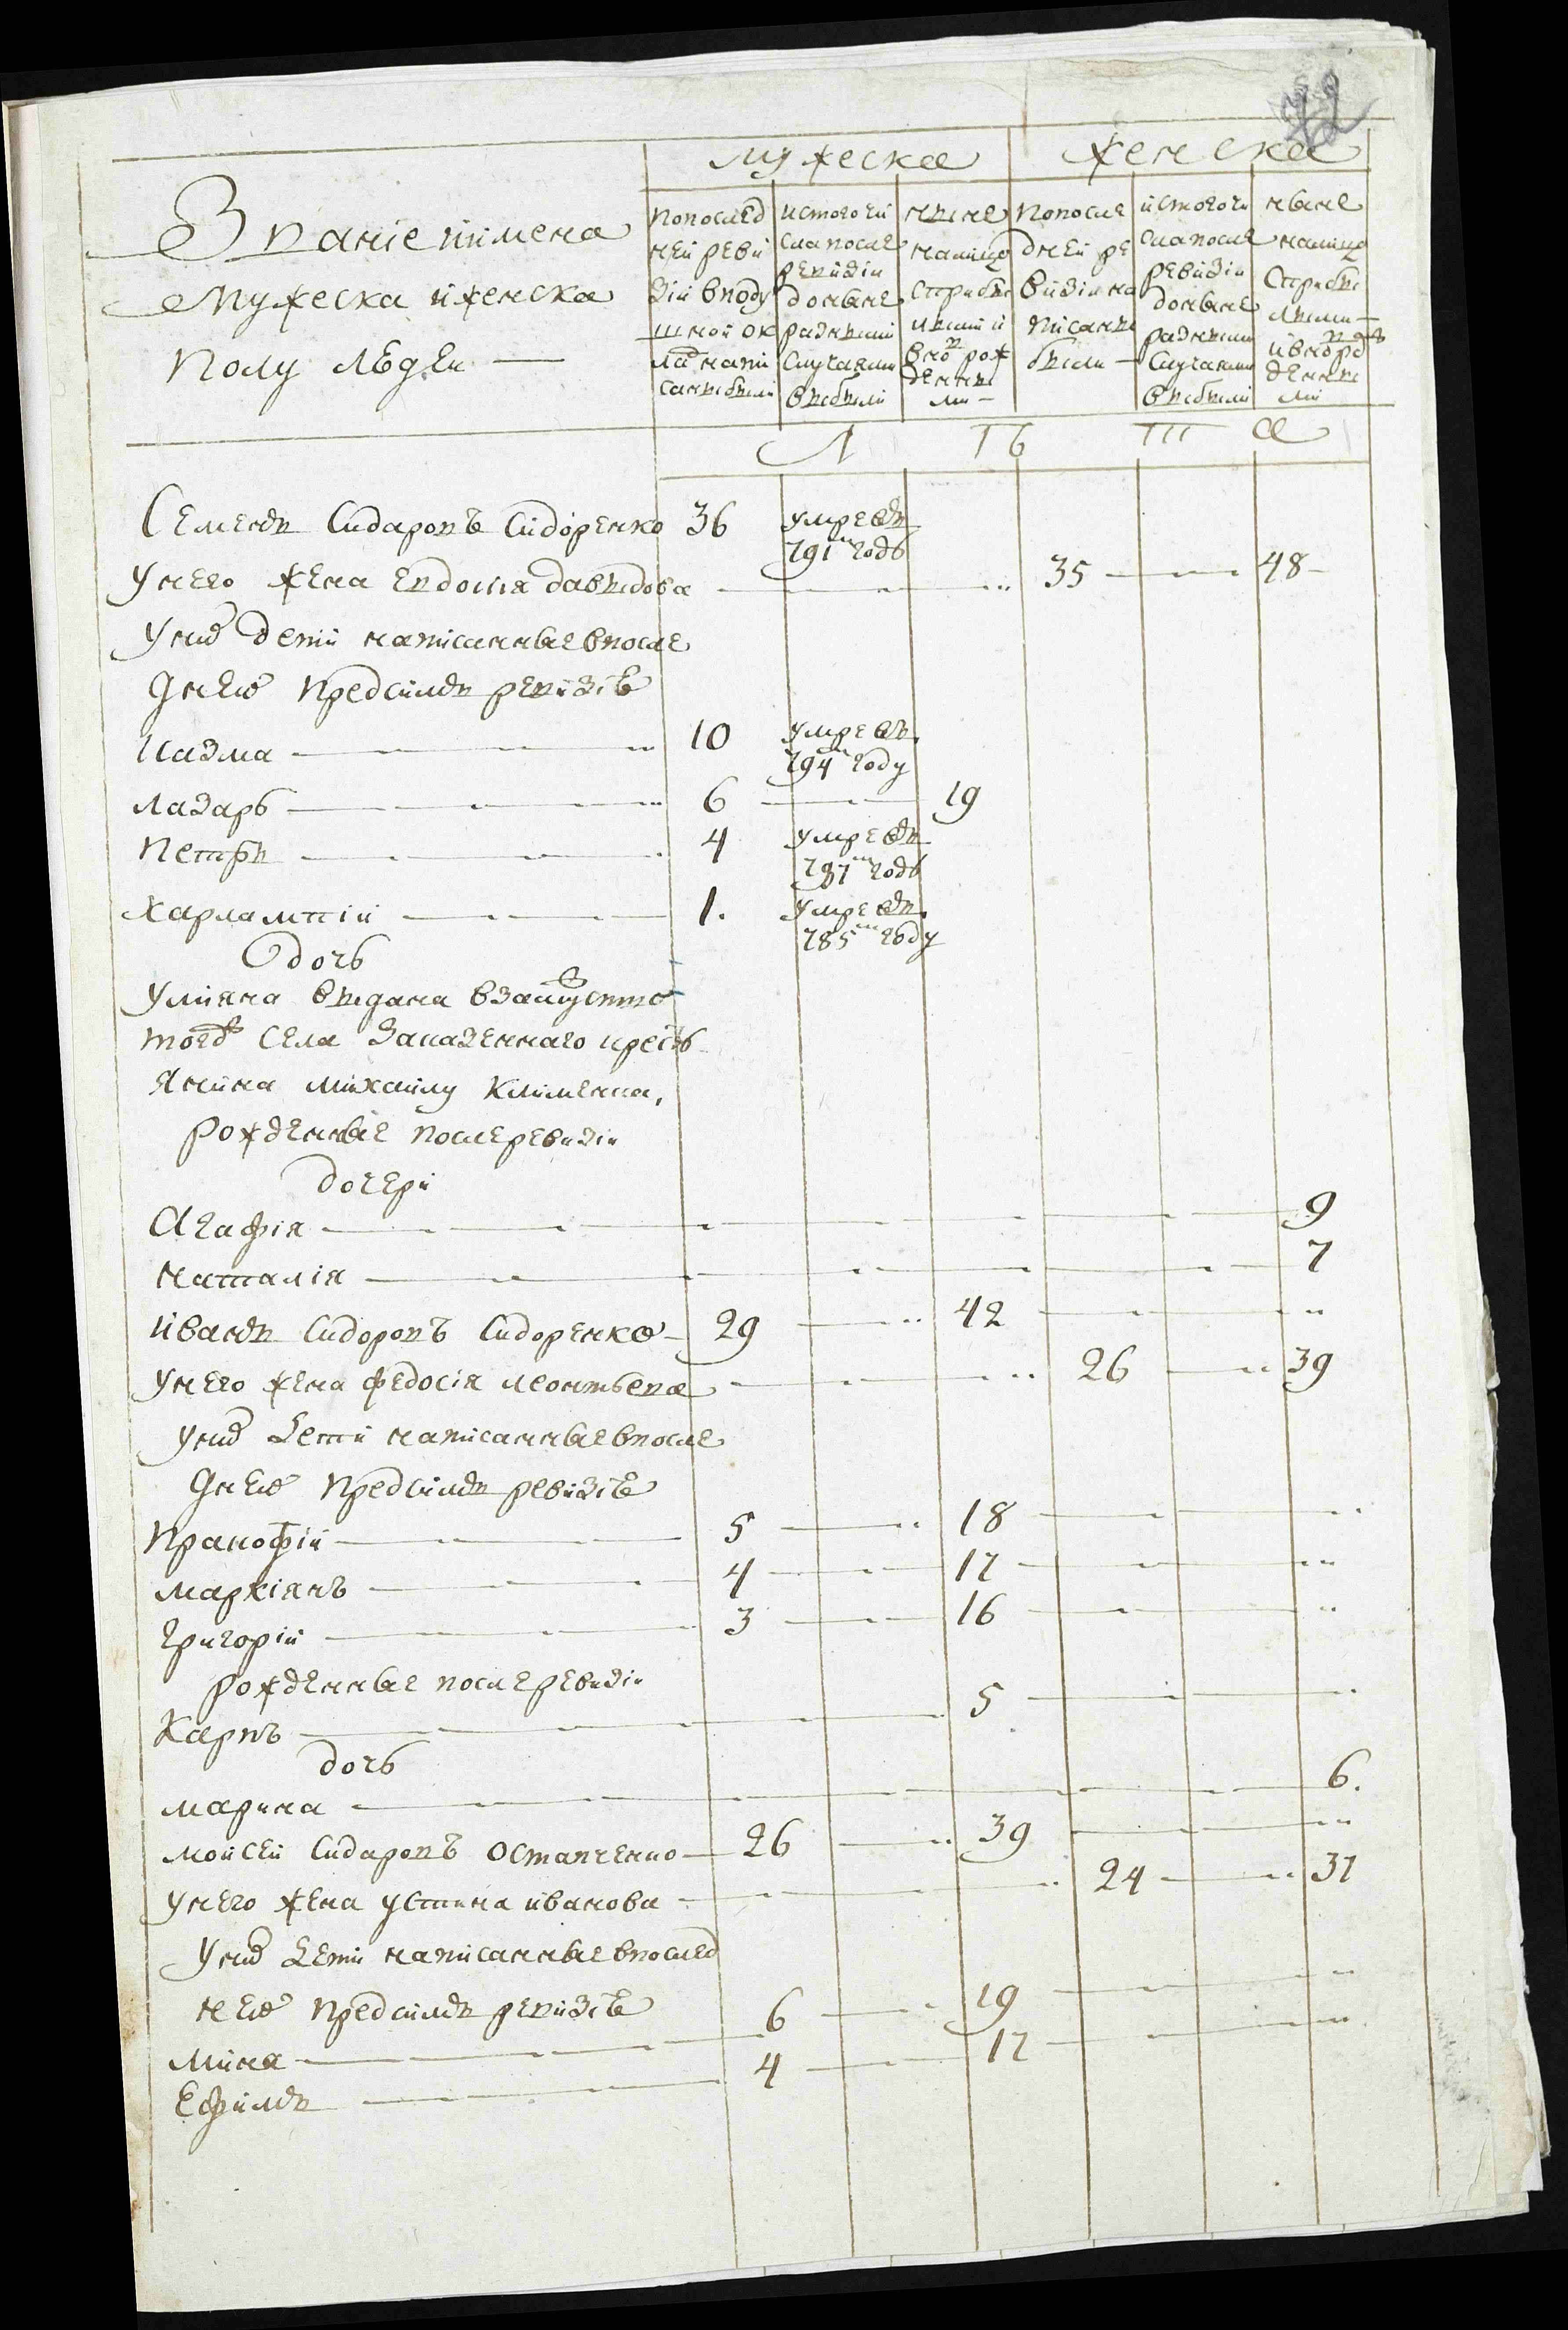 мужеска
женска
Званіе иимена
Мужеска иженска
полу людеи
попослед
ней реви
зіи вподу
шной ок
ладъ напи
саны были
истого чи
сла после
ревизіи
донынѣ
разными
случаями
выбыли
нынѣ
налицо
старыѣ
лѣтми и
внов рож
денны
ми
попосле
дней ре
визіи на
писаны
были
истого чи
сла после
ревизіи
донынѣ
разными
случаями
выбыли
нынѣ
налицо
Л ѣ т а
Семенъ Сидаровъ Сидоренко 36 умре въ
791м годѣ
унего жена Евдошія давыдова 35 48
унихъ дети написанныевпосле
днею предсимъ ревизіѣ
Казма 10 умре въ
794м году
лазарь 6 19
петръ 4 умре въ
787м годѣ
харлампій 1. умре въ
785м году
дочь
Уліяна выдана взамужство
тогожъ села Заказеннаго кресть
янина михайлу клименка,
рожденныѣ послеревизіи
дочери
Агафія 9
наталія 7
иванъ Сидоровъ Сидоренко 29 42
унего жена федосія леонтьева 26 39
унихъ дети написанныевпосле
днею предсимъ ревизіѣ
Пракофій 5 18
маркіянъ 4 17
григорій 3 16
рожденныѣ послеревизіи
Карпъ 5
дочь
марина 6.
мойсей Сидаровъ Остапченко 26 39
унего жена устина иванова 24 37
унихъ дети написанныевпослед
нею предсимъ ревизіѣ
мина 6 19
Ефимъ 4 17